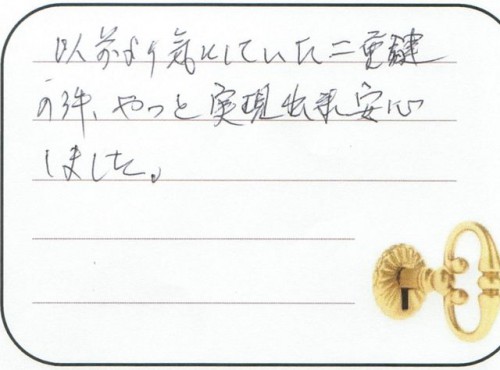 以前より気にしていた二重鍵
の件、やっと実現出来安心
しました。